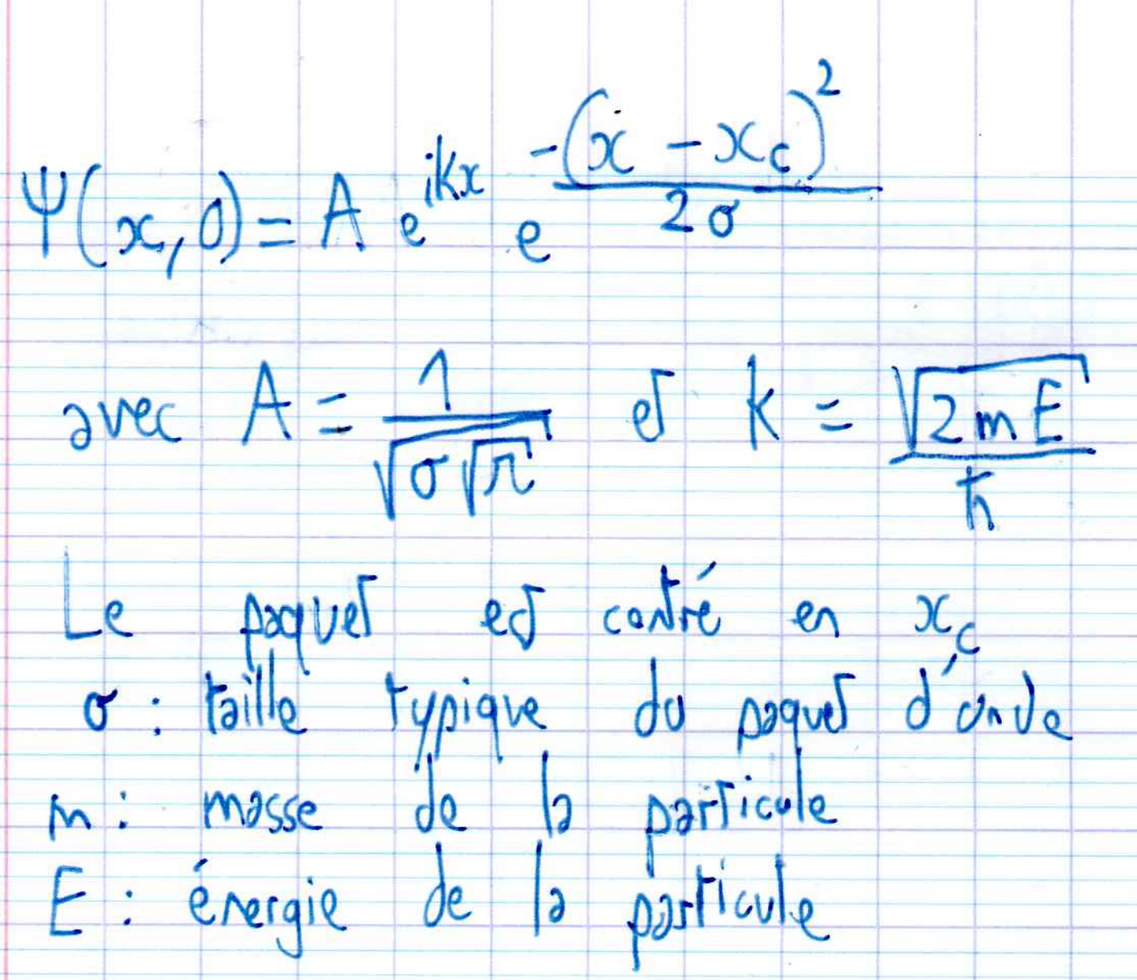 Ψ(x,0) = A e^{ikx} e^{-(x - x_c)^2 / 2σ}
avec A = 1/√(σ√π) et k = √(2mE)/ħ
Le paquet est centré en x_c
σ : taille typique du paquet d'onde
m : masse de la particule
E : énergie de la particule